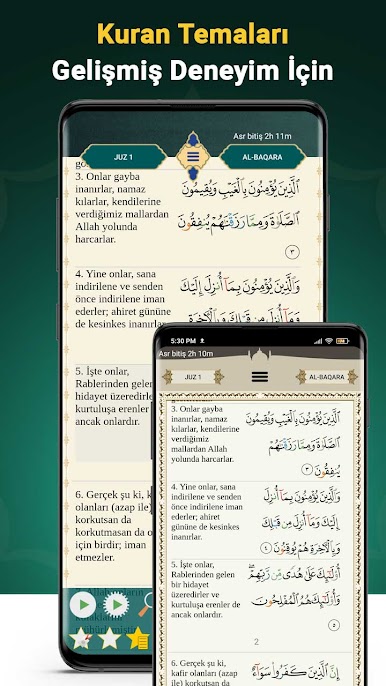 Kuran Temaları
Gelişmiş Deneyim İçin
Asr bitiş 2h 11m
JUZ 1
AL-BAQARA
3. Onlar gayba
inanırlar, namaz
kılarlar, kendilerine
verdiğimiz mallardan
Allah yolunda
harcarlar.
الَّذِينَ يُؤْمِنُونَ بِالْغَيْبِ وَيُقِيمُونَ
الصَّلَاةَ وَمِمَّا رَزَقْنَاهُمْ يُنفِقُونَ
٣
4. Yine onlar, sana
indirilene ve senden
önce indirilene iman
ederler; ahiret gününe
de kesinkes inanırlar.
وَالَّذِينَ يُؤْمِنُونَ بِمَا أُنزِلَ إِلَيْكَ
وَمَا أُنزِلَ مِن قَبْلِكَ وَبِالْآخِرَةِ
5. İşte onlar,
Rablerinden gelen
hidayet üzeredirler
kurtuluşa erenler
ancak onlardır.
6. Gerçek şu ki, k
olanları (azap ile)
korkutsan da
korkutmasan da o
için birdir; iman
etmezler.
5:30 PM
Asr bitiş 2h 10m
JUZ 1
AL-BAQARA
3. Onlar gayba
inanırlar, namaz
kılarlar, kendilerine
verdiğimiz
mallardan Allah
yolunda harcarlar.
الَّذِينَ يُؤْمِنُونَ بِالْغَيْبِ وَيُقِيمُونَ
الصَّلَاةَ وَمِمَّا رَزَقْنَاهُمْ
يُنفِقُونَ ٣
4. Yine onlar, sana
indirilene ve senden
önce indirilene iman
ederler; ahiret
gününe de kesinkes
inanırlar.
وَالَّذِينَ يُؤْمِنُونَ بِمَا أُنزِلَ
إِلَيْكَ وَمَا أُنزِلَ مِن قَبْلِكَ
وَبِالْآخِرَةِ هُمْ يُوقِنُونَ ٤
5. İşte onlar,
Rablerinden gelen
bir hidayet
üzeredirler ve
kurtuluşa erenler de
ancak onlardır.
أُولَٰئِكَ عَلَىٰ هُدًى مِّن رَّبِّهِمْ ۖ
وَأُولَٰئِكَ هُمُ الْمُفْلِحُونَ
٥
2
6. Gerçek şu ki,
kafir olanları (azap
ile) korkutsan da
إِنَّ الَّذِينَ كَفَرُوا سَوَاءٌ